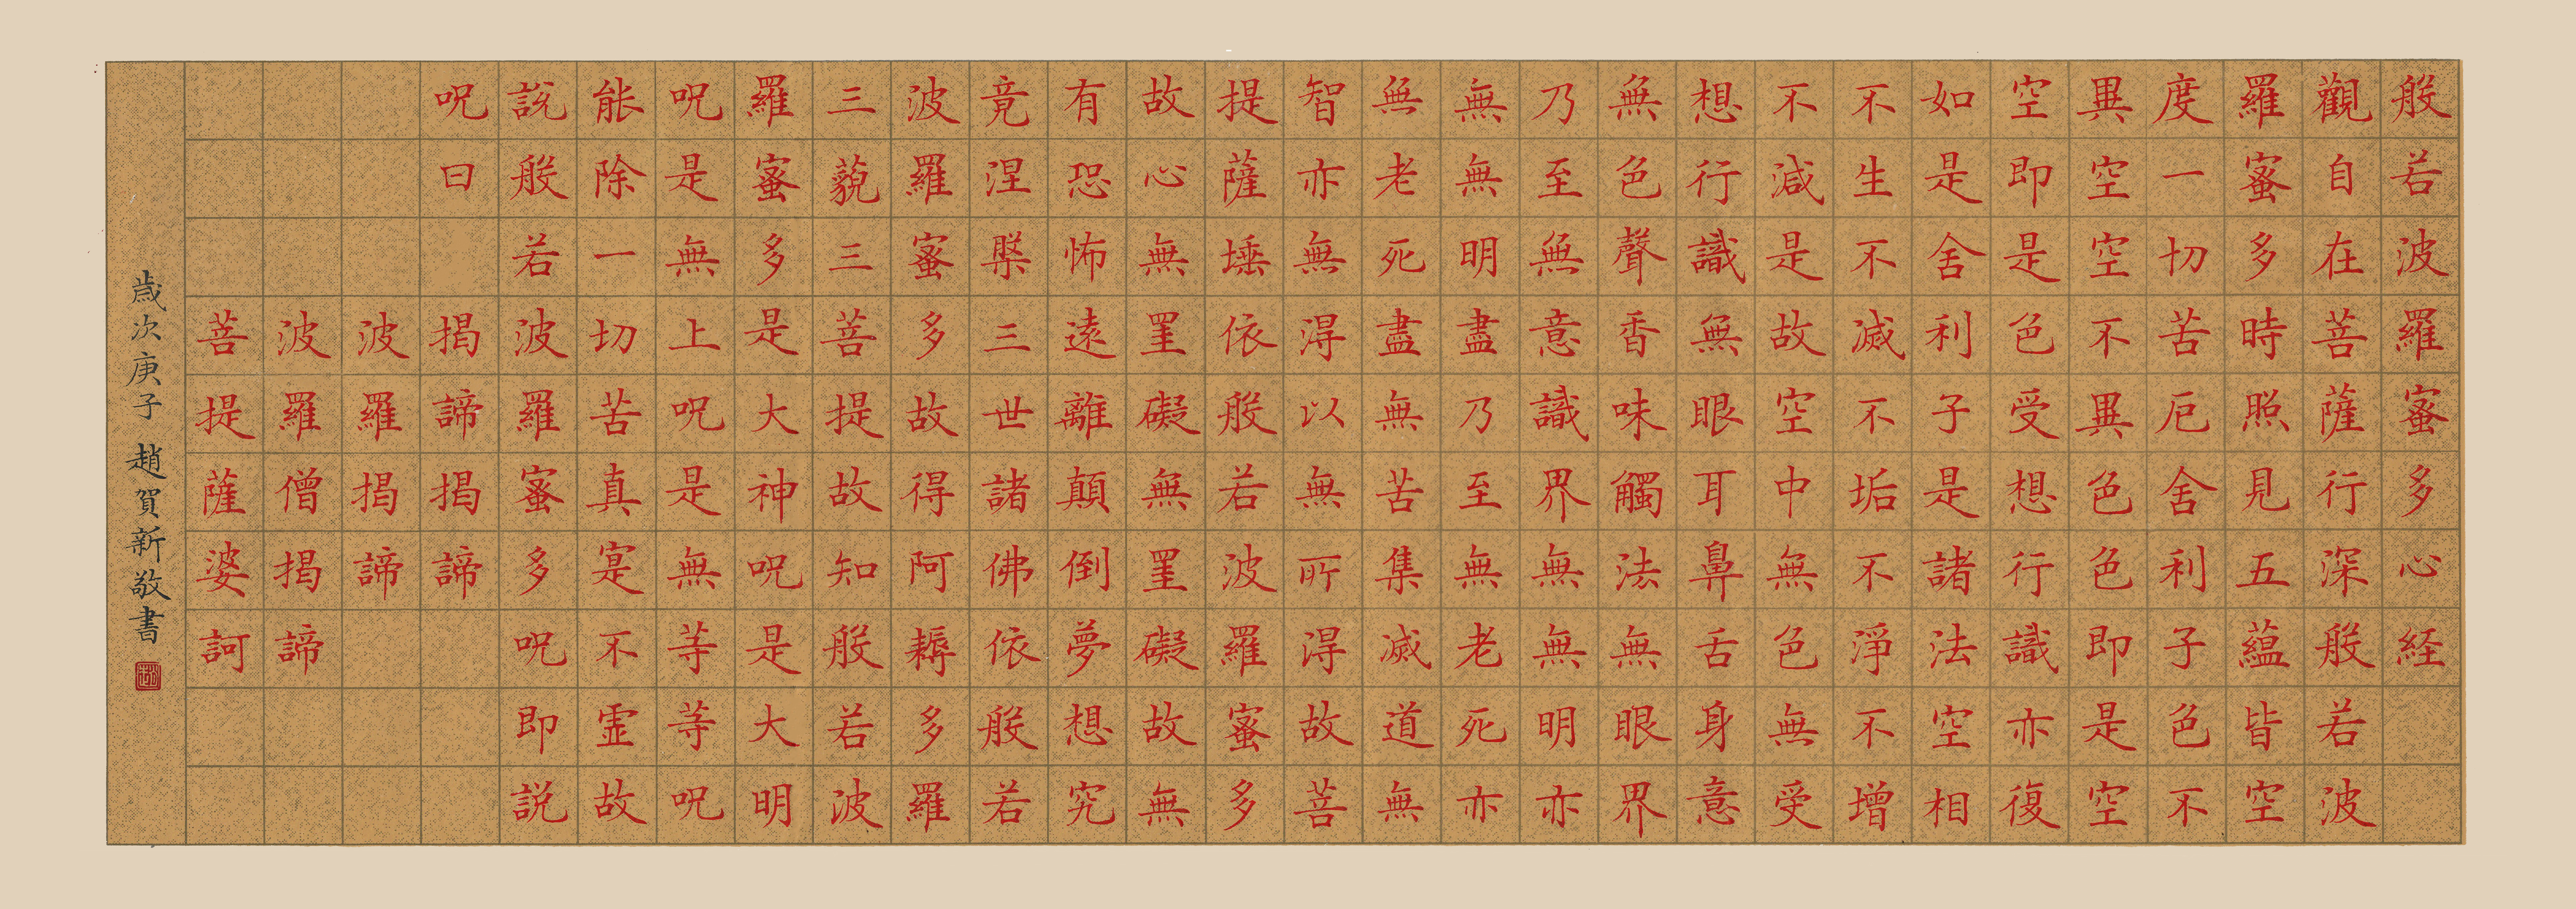 般若波羅蜜多心経
觀自在菩薩行深般若波
羅蜜多時照見五蘊皆空
度一切苦厄舍利子色不
異空空不異色色即是空
空即是色受想行識亦復
如是舍利子是諸法空相
不生不滅不垢不淨不增
不減是故空中無色無受
想行識無眼耳鼻舌身意
無色聲香味觸法無眼界
乃至無意識界無無明亦
無無明盡乃至無老死亦
無老死盡無苦集滅道無
智亦無得以無所得故菩
提薩埵依般若波羅蜜多
故心無罣礙無罣礙故無
有恐怖遠離顛倒夢想究
竟涅槃三世諸佛依般若
波羅蜜多故得阿耨多羅
三藐三菩提故知般若波
羅蜜多是大神呪是大明
呪是無上呪是無等等呪
能除一切苦真寔不虛故
說般若波羅蜜多呪即説
呪曰 揭諦揭諦
波羅揭諦
波羅僧揭諦
菩提薩婆訶
歲次庚子 趙賀新敬書